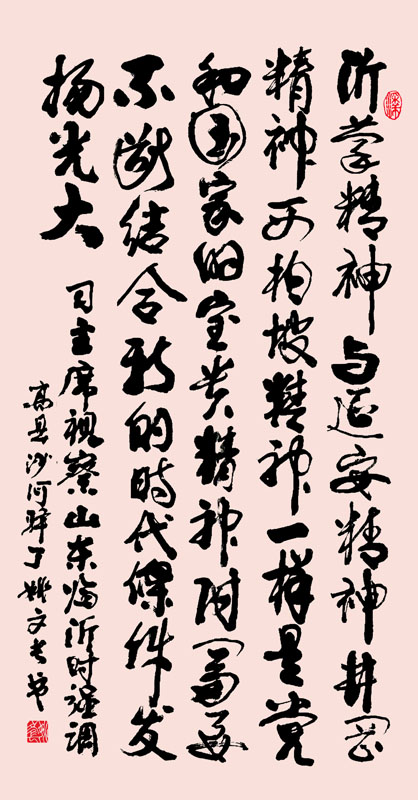 沂蒙精神与延安精神井冈山
精神西柏坡精神一样是党
和国家的宝贵精神财富要
不断结合新的时代条件发
扬光大
习主席视察山东临沂时强调
高县沙河驿丁姚文书